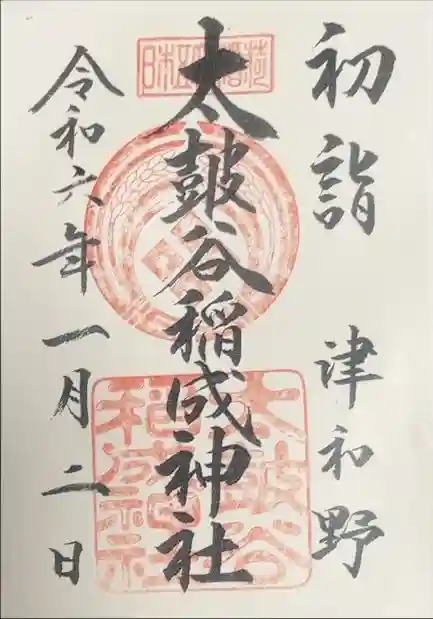 初詣 津和野
太皷谷稲成神社
令和六年一月二日
太皷谷
稲成神社